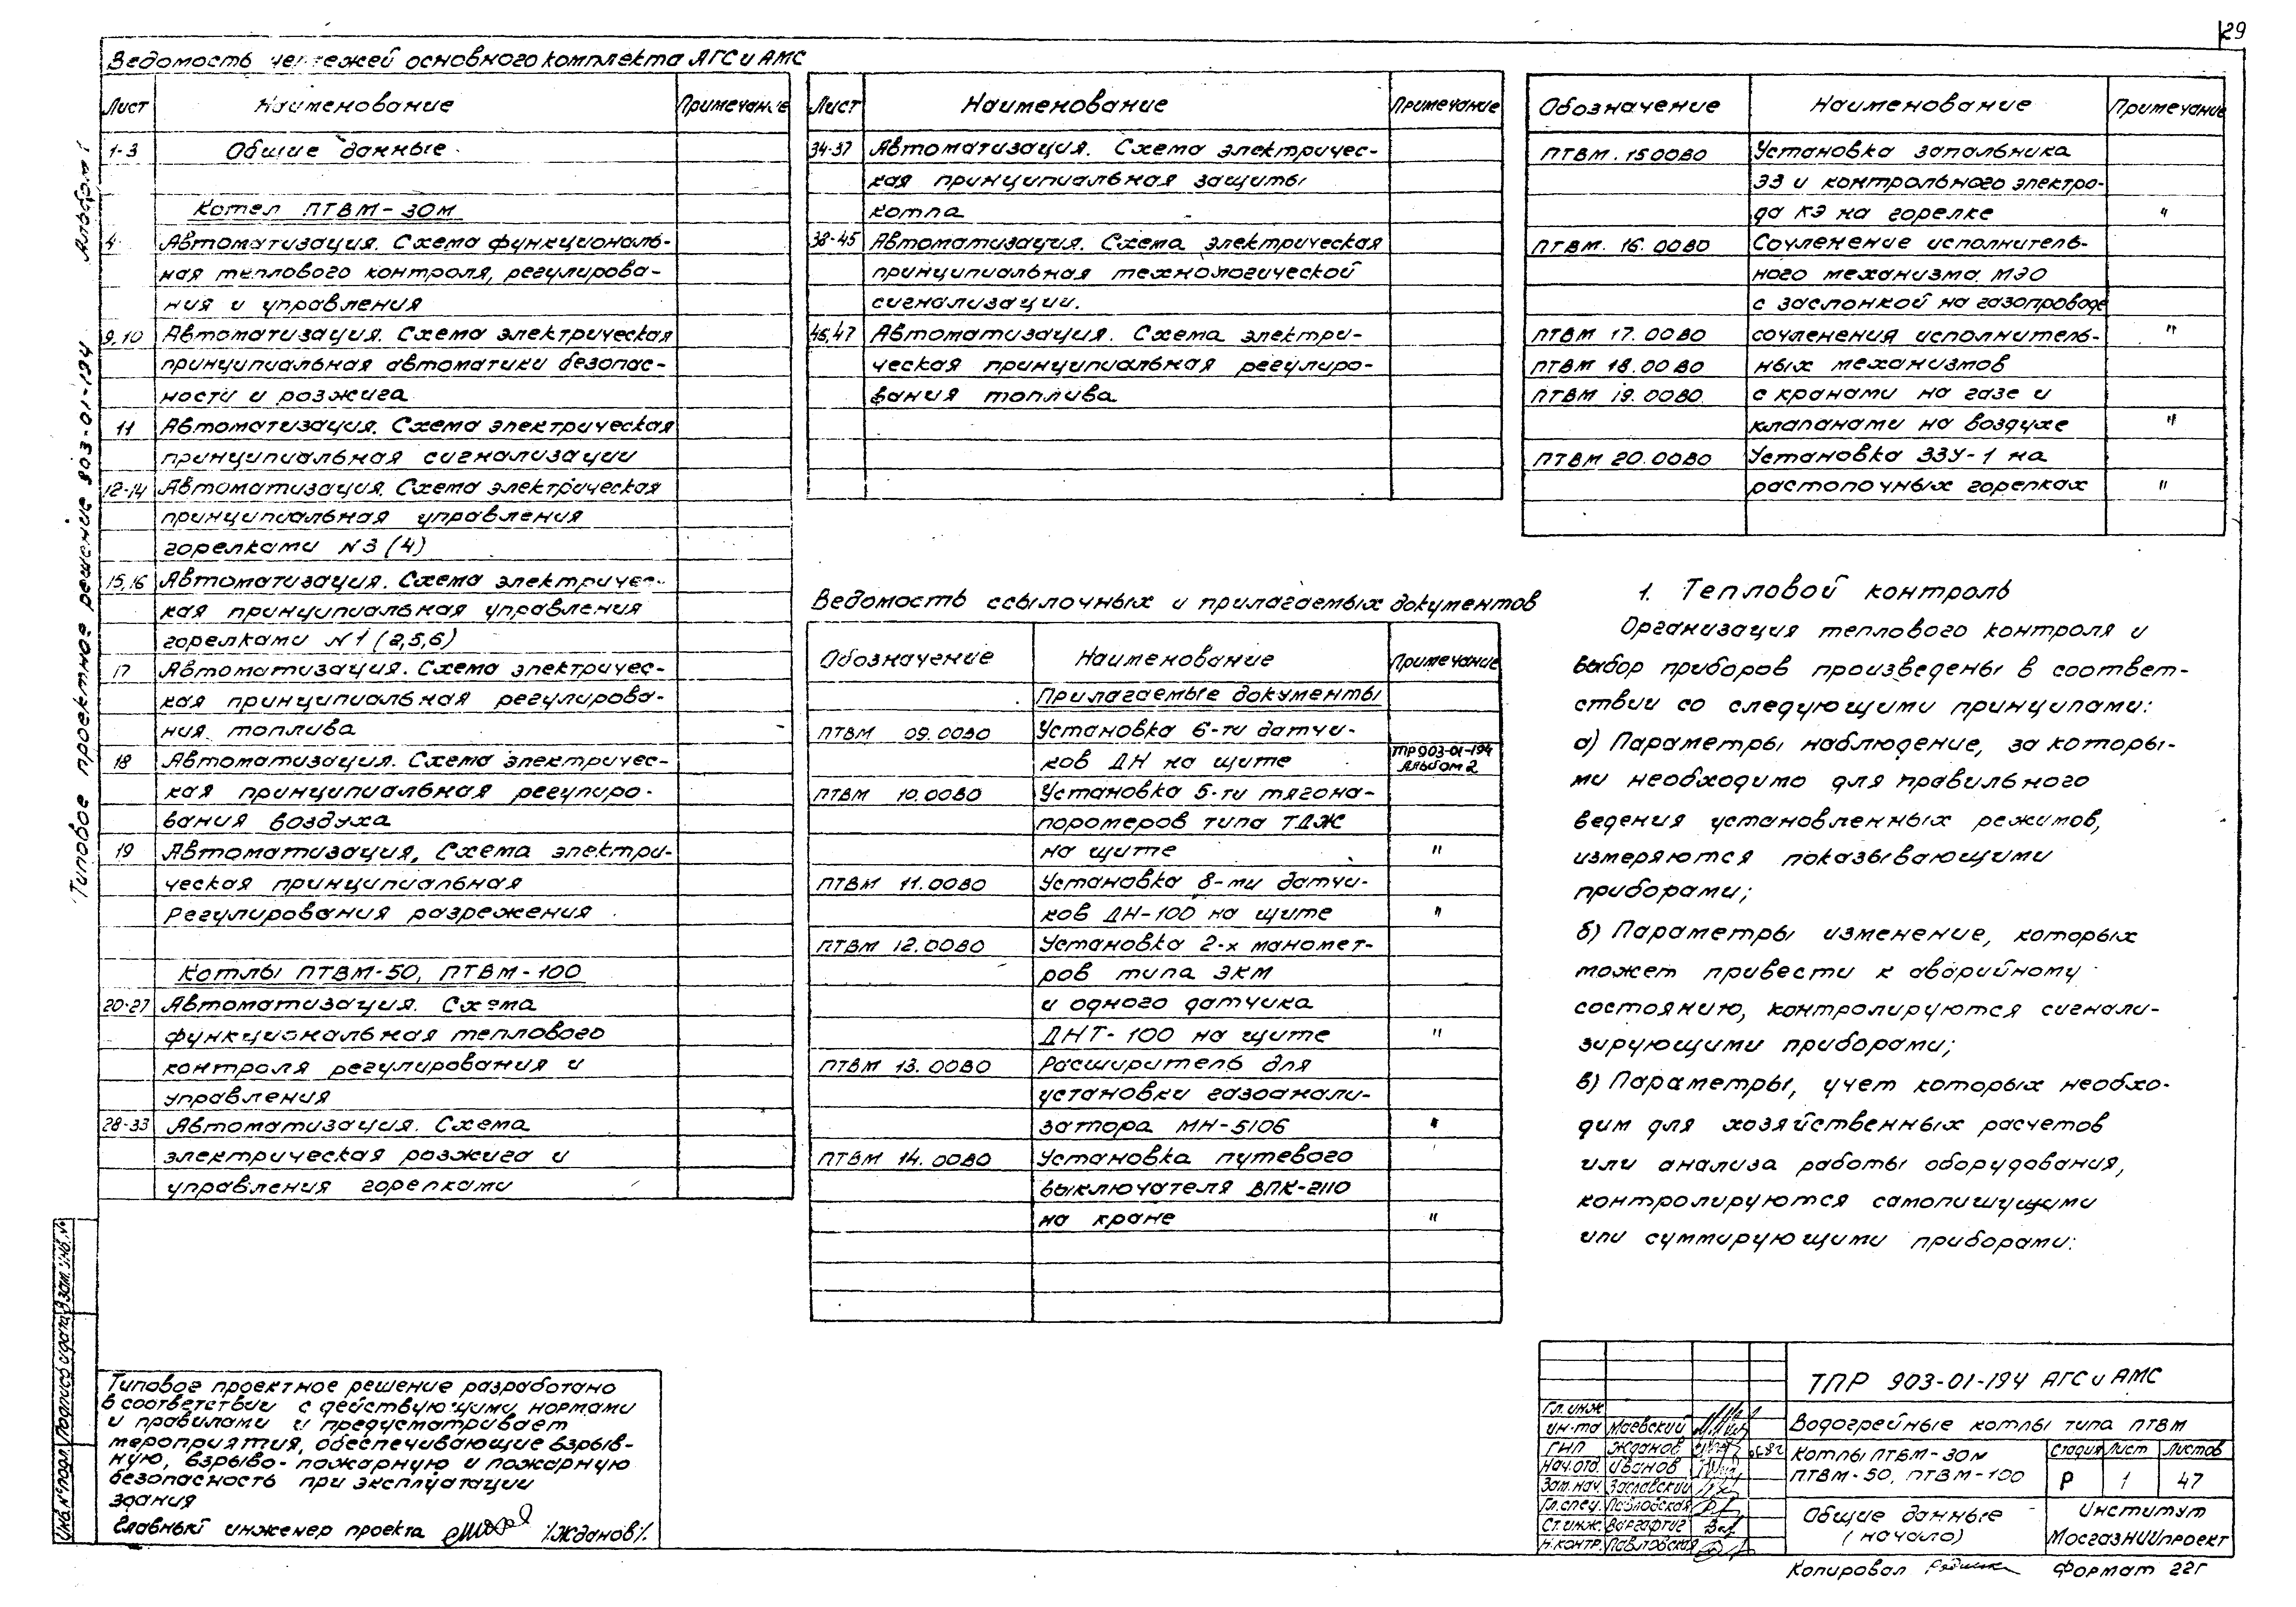 29
Ведомость чертежей основного комплекта АГС и АМС
Лист Наименование Примечание
1-3 Общие данные
Котел ПТВМ-30М
4 Автоматизация. Схема функциональ-
ная теплового контроля, регулирова-
ния и управления
9,10 Автоматизация. Схема электрическая
принципиальная автоматики безопас-
ности и розжига
11 Автоматизация. Схема электрическая
принципиальная сигнализации
12-14 Автоматизация. Схема электрическая
принципиальная управления
горелками N3 (4)
15,16 Автоматизация. Схема электричес-
кая принципиальная управления
горелками N1 (2,5,6)
17 Автоматизация. Схема электричес-
кая принципиальная регулирова-
ния топлива
18 Автоматизация. Схема электричес-
кая принципиальная регулиро-
вания воздуха
19 Автоматизация, Схема электри-
ческая принципиальная
Регулирования разрежения
Котлы ПТВМ-50, ПТВМ-100
20-27 Автоматизация. Схема
функциональная теплового
контроля регулирования и
управления
28-33 Автоматизация. Схема
электрическая розжига и
управления горелками
Лист Наименование Примечание
34-37 Автоматизация. Схема электричес-
кая принципиальная защиты
котла
38-45 Автоматизация. Схема электрическая
принципиальная технологической
сигнализации.
46,47 Автоматизация. Схема электри-
ческая принципиальная регулиро-
вания топлива
Ведомость ссылочных и прилагаемых документов
Обозначение Наименование Примечание
Прилагаемые документы
ПТВМ 09.00В0 Установка 6-ти датчи-
ков ДН на щите ТПР 903-01-194 Альбом 2
ПТВМ 10.00В0 Установка 5-ти тягона-
поромеров типа ТДЖ
на щите "
ПТВМ 11.00В0 Установка 8-ми датчи-
ков ДН-100 на щите "
ПТВМ 12.00В0 Установка 2-х маномет-
ров типа ЭКМ
и одного датчика
ДНТ-100 на щите "
ПТВМ 13.00В0 Расширитель для
установки газоанали-
затора МН-5106 "
ПТВМ 14.00В0 Установка путевого
выключателя ВПК-2110
на кране "
Обозначение Наименование Примечание
ПТВМ.15 00В0 Установка запальника
ЭЗ и контрольного электро-
да КЭ на горелке "
ПТВМ. 16.00В0 Сочленение исполнитель-
ного механизма МЭО
с заслонкой на газопроводе
ПТВМ 17.00В0 сочленения исполнитель- "
ПТВМ 18.00В0 ных механизмов
ПТВМ 19.00В0 с кранами на газе и
клапанами на воздухе "
ПТВМ 20.00В0 Установка ЗЗУ-1 на
растопочных горелках "
1. Тепловой контроль
Организация теплового контроля и
выбор приборов произведены в соответ-
ствии со следующими принципами:
а) Параметры наблюдение, за которы-
ми необходимо для правильного
ведения установленных режимов,
измеряются показывающими
приборами;
б) Параметры изменение, которых
может привести к аварийному
состоянию, контролируются сигнали-
зирующими приборами;
в) Параметры, учет которых необхо-
дим для хозяйственных расчетов
или анализа работы оборудования,
контролируются самопишущими
или суммирующими приборами:
Типовое проектное решение 903-01-194 Альбом 1
Инв. N° подл. Подпись и дата Взам. инв. N°
Типовое проектное решение разработано
в соответствии с действующими нормами
и правилами и предусматривает
мероприятия, обеспечивающие взрыв-
ную, взрыво-пожарную и пожарную
безопасность при эксплуатации
здания
Главный инженер проекта /Жданов/.
ТПР 903-01-194 АГС и АМС
Гл. инж
ин-та Маевский
ГИП Жданов
Нач.отд. Иванов
Зам.нач. Заславский
Гл.спец. Павловская
Ст.инж. Варгафтиг
Н.контр. Павловская
Водогрейные котлы типа ПТВМ
Котлы ПТВМ-30М
ПТВМ-50, ПТВМ-100
Стадия Лист Листов
Р 1 47
Общие данные
(начало)
Институт
МосгазНИИпроект
Копировал Формат 22Г